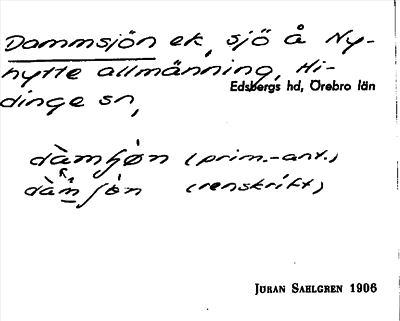 Dammsjön ek, sjö å Ny-
hytte allmänning, Hi-
Edsbergs hd, Örebro län
dinge sn,
dàmʃøn (prim.-ant.)
dàm̀ʃòn (renskrift)
JÖRAN SAHLGREN 1906